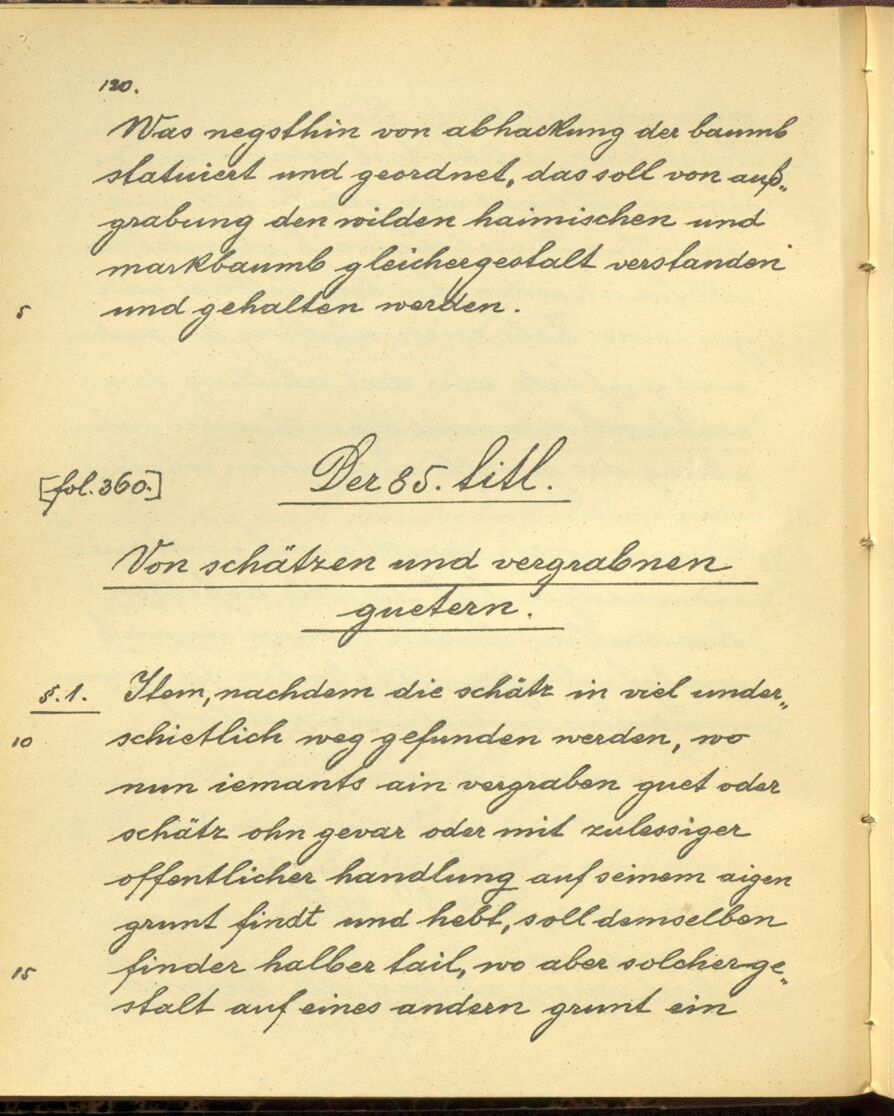 120.
Was negsthin von abhackung der baumb
statuiert und geordnet, das soll von auß„
grabung den wilden haimischen und
markbaumb gleichergestalt verstanden
5 und gehalten werden.
[fol. 360.] Der 85. titl.
Von schätzen und vergrabnen
guetern.
§. 1. Item, nachdem die schätz in viel under„
10 schietlich weg gefunden werden, wo
nun iemants ain vergraben guet oder
schätz ohn gevar oder mit zulessiger
offentlicher handlung auf seinem aigen
grunt findt und hebt, soll demselben
15 finder halber tail, wo aber solcher ge„
stalt auf eines andern grunt ein